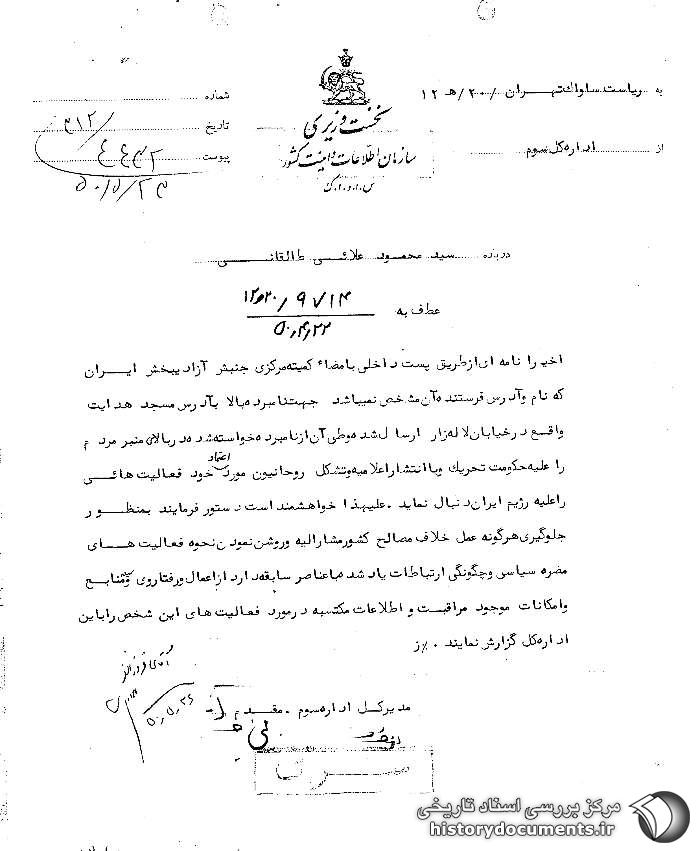 به ریاست ساواک تهران / ۲۰ ه‍ ۱۲
از اداره کل سوم
نخست وزیری
سازمان اطلاعات و امنیت کشور
س.ا.و.ا.ک
شماره ۳۱۲/
تاریخ ۴۴۳۲
پیوست
۵۰/۵/۲۳
درباره سید محمود علائی طالقانی
عطف به ۹۷۱۴ / ۲۰ه‍۱۲
۵۰٫۴٫۲۲
اخیرا نامه ای از طریق پست داخلی بامضاء کمیته مرکزی جنبش آزادیبخش ایران
که نام و آدرس فرستنده آن مشخص نمیباشد جهت نامبرده بالا بآدرس مسجد هدایت
واقع در خیابان لاله زار ارسال شده و طی آن از نامبرده خواسته شده در بالای منبر مردم
را علیه حکومت تحریک و با انتشار اعلامیه و تشکل روحانیون مورد اعتماد خود فعالیت هائی
را علیه رژیم ایران دنبال نماید . علیهذا خواهشمند است دستور فرمایند بمنظور
جلوگیری هرگونه عمل خلاف مصالح کشور مشارالیه و روشن نمودن نحوه فعالیت های
مضره سیاسی و چگونگی ارتباطات یاد شده با عناصر سابقه دار از اعمال و رفتار وی و منابع
و امکانات موجود مراقبت و اطلاعات مکتسبه در مورد فعالیت های این شخص را باین
اداره کل گزارش نمایند . %ز
مدیرکل اداره سوم . مقدم
۵۰٫۵٫۲۶
سری
مرکز بررسی اسناد تاریخی
historydocuments.ir